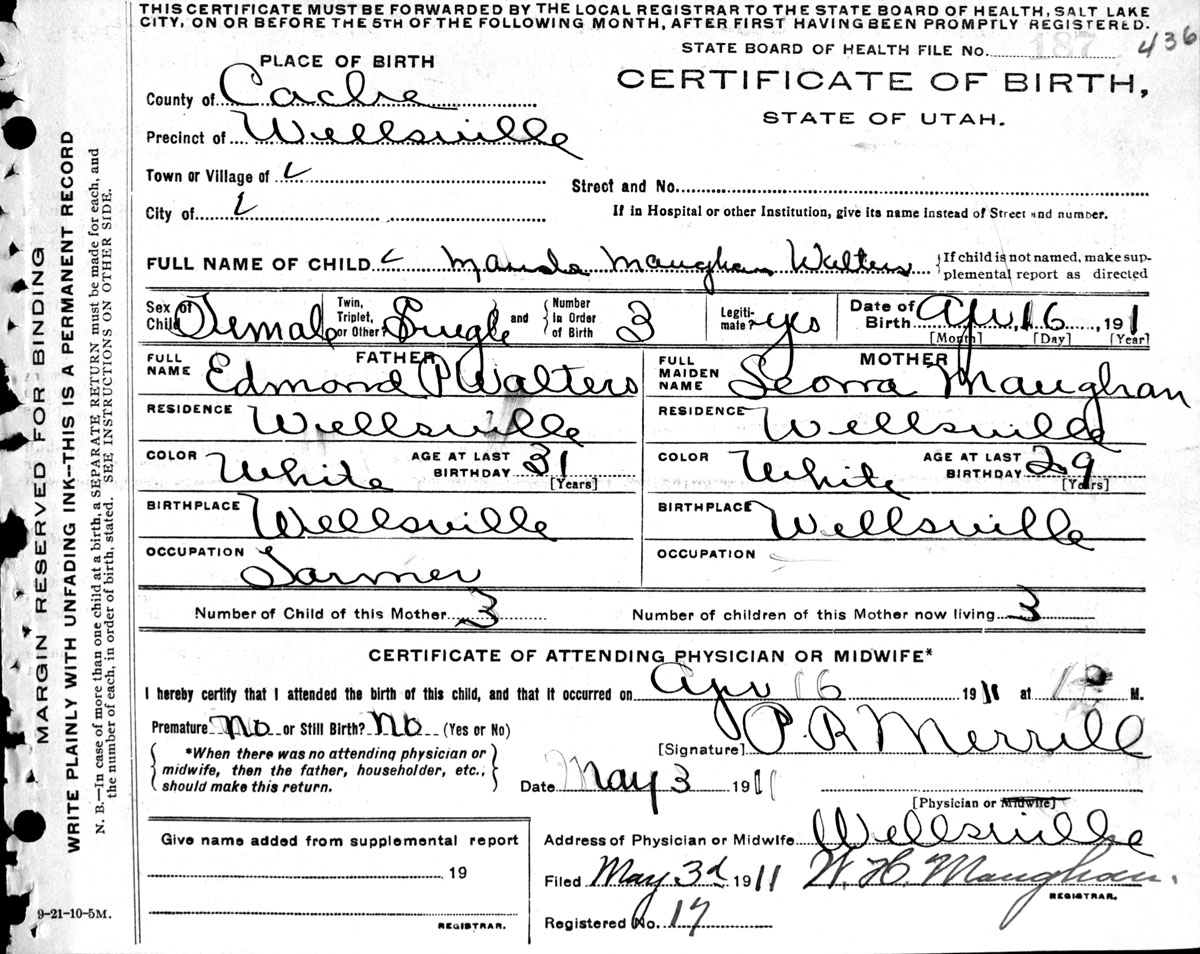 THIS CERTIFICATE MUST BE FORWARDED BY THE LOCAL REGISTRAR TO THE STATE BOARD OF HEALTH, SALT LAKE
CITY, ON OR BEFORE THE 5TH OF THE FOLLOWING MONTH, AFTER FIRST HAVING BEEN PROMPTLY REGISTERED.
STATE BOARD OF HEALTH FILE No. 187 436
PLACE OF BIRTH
CERTIFICATE OF BIRTH,
STATE OF UTAH.
County of Cache
Precinct of Wellsville
Town or Village of
Street and No.
City of
If in Hospital or other Institution, give its name instead of Street and number.
FULL NAME OF CHILD Maughan Walters {If child is not named, make sup-
plemental report as directed
Sex of Child Female Twin, Triplet, or Other? Single and {Number In Order of Birth 3 Legiti-mate? yes Date of Birth Apr, 16, 1911
[Month] [Day] [Year]
FATHER MOTHER
FULL NAME Edmond P Walters FULL MAIDEN NAME Maughan
RESIDENCE Wellsville RESIDENCE Wellsville
COLOR White AGE AT LAST BIRTHDAY 31 [Years] COLOR White AGE AT LAST BIRTHDAY 29 [Years]
BIRTHPLACE Wellsville BIRTHPLACE Wellsville
OCCUPATION Farmer OCCUPATION
Number of Child of this Mother 3 Number of children of this Mother now living 3
CERTIFICATE OF ATTENDING PHYSICIAN OR MIDWIFE*
I hereby certify that I attended the birth of this child, and that it occurred on Apr 16 1911 at M.
Premature No or Still Birth? No (Yes or No)
[Signature] P. R Merrill
{*When there was no attending physician or
midwife, then the father, householder, etc.,
should make this return.}
Date May 3 1911
[Physician or Midwife]
Give name added from supplemental report
19
REGISTRAR.
Address of Physician or Midwife Wellsville
Filed May 3d 1911 W. H. Maughan.
REGISTRAR.
Registered No. 17
9-21-10-5M.
MARGIN RESERVED FOR BINDING
WRITE PLAINLY WITH UNFADING INK--THIS IS A PERMANENT RECORD
N. B.—In case of more than one child at a birth, a SEPARATE RETURN must be made for each, and
the number of each, in order of birth, stated. SEE INSTRUCTIONS ON OTHER SIDE.